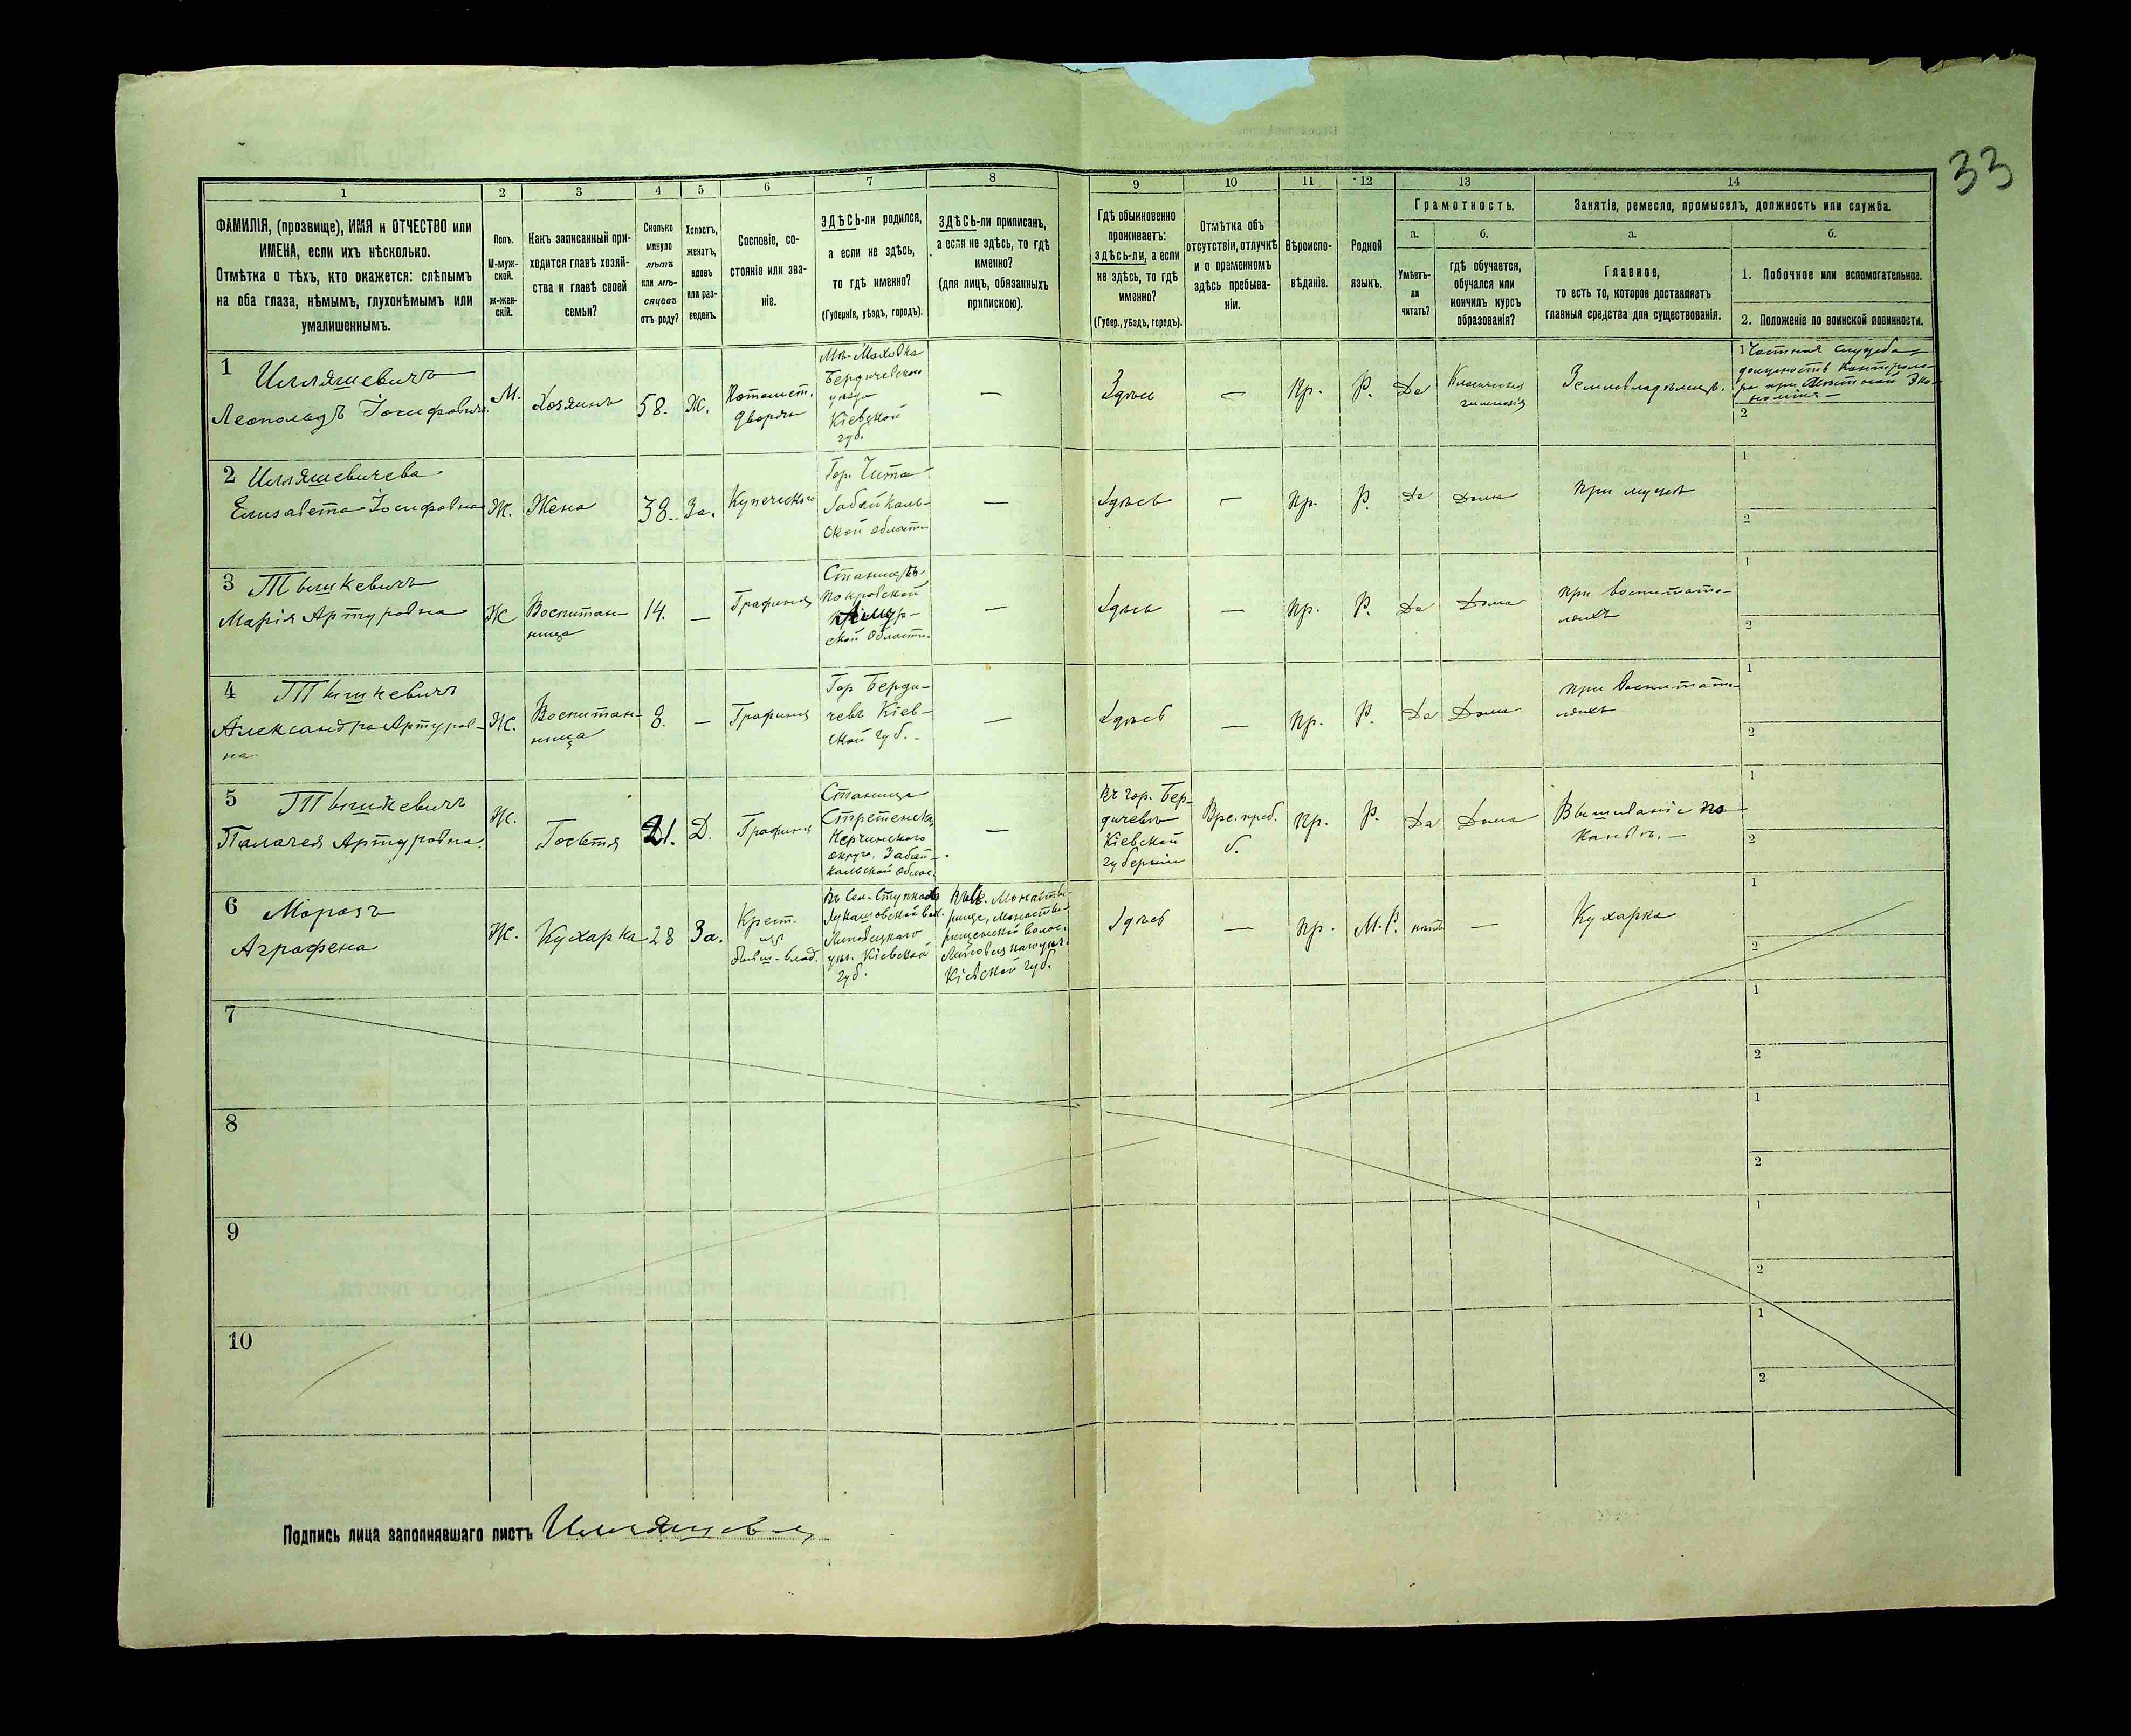 33
1
2
3
4
5
6
7
8
9
10
11
12
13
14
ФАМИЛІЯ, (прозвище), ИМЯ и ОТЧЕСТВО или
ИМЕНА, если ихъ нѣсколько.
Отмѣтка о тѣхъ, кто окажется: слѣпымъ
на оба глаза, нѣмымъ, глухонѣмымъ или
умалишеннымъ.
Полъ.
М-муж-
ской.
Ж-жен-
скій.
Какъ записанный при-
ходится главѣ хозяй-
ства и главѣ своей
семьи?
Сколько
минуло
лѣтъ
или мѣ-
сяцевъ
отъ роду?
Холостъ,
женатъ,
вдовъ
или раз-
веденъ.
Сословіе, со-
стояніе или зва-
ніе.
ЗДѢСЬ-ли родился,
а если не здѣсь,
то гдѣ именно?
(Губернія, уѣздъ, городъ).
ЗДѢСЬ-ли приписанъ,
а если не здѣсь, то гдѣ
именно?
(для лицъ, обязанныхъ
припискою).
Гдѣ обыкновенно
проживаетъ:
здѣсь-ли, а если
не здѣсь, то гдѣ
именно?
(Губер., уѣздъ, городъ).
Отмѣтка объ
отсутствіи, отлучкѣ
и о временномъ
здѣсь пребыва-
ніи.
Вѣроиспо-
вѣданіе.
Родной
языкъ.
Грамотность.
а.
Умѣетъ-
ли
читать?
б.
гдѣ обучается,
обучался или
кончилъ курсъ
образованія?
Занятіе, ремесло, промыселъ, должность или служба.
а.
Главное,
то есть то, которое доставляетъ
главныя средства для существованія.
б.
1. Побочное или вспомогательное.
2. Положеніе по воинской повинности.
1
Илляшевичъ
Леопольдъ Іосифовичъ
М.
Хозяинъ
58.
Ж.
Потомст.
дворян
Мѣс. Маховка
Бердичевскаго
уѣзда
Кіевской
губ.
—
Здѣсь
—
Пр.
Р.
Да
Классическая
гимназія
Землевладѣлецъ.
1 Частная служба
должность контроле-
ра при Мѣстной Эко-
номіи —
2
2 Илляшевичева
Елизавета Іосифовна
Ж.
Жена
38.
За.
Купеческаго
Гор. Чита
Забайкаль-
ской области
—
Здѣсь
—
Пр.
Р.
Да
Дома
При мужѣ
1
2
3 Тышкевичъ
Марія Артуровна
Ж
Воспитан-
ница
14.
—
Графиня
Станицѣ
Покровской
Амур-
ской Области.
—
Здѣсь
—
Пр.
Р.
Да
Дома
при воспитате-
ляхъ
1
2
4 Тышкевичъ
Александра Артуров-
на
Ж.
Воспитан-
ница
8.
—
Графиня
Гор Берди-
чевъ Кіев-
ской губ.
—
Здѣсь
—
Пр.
Р.
Да
Дома
при воспитате-
ляхъ
1
2
5 Тышкевичъ
Палагея Артуровна.
Ж.
Гостья
21.
Д.
Графиня
Станица
Стретенска
Нерчинскаго
округа. Забай-
кальской облас.
—
Въ гор. Бер-
дичевѣ
Кіевской
губерніи
Вре. преб.
б.
Пр.
Р.
Да
Дома
Вышиваніе по
канвѣ. —
1
2
6 Морозъ
Аграфена
Ж.
Кухарка
28
За.
Крест.
изъ
бывш-влад.
Въ Сел. Ступкахъ
Лукашовской вол.
Липовецкаго
уѣз. Кіевской
губ.
Въ М. Монасты-
рище, Монасты-
рищенской волос.
Липовецкаго уѣз.
Кіевской губ.
Здѣсь
—
Пр.
М.Р.
нѣтъ
—
Кухарка
1
2
7
1
2
8
1
2
9
1
2
10
1
2
Подпись лица заполнявшаго листъ